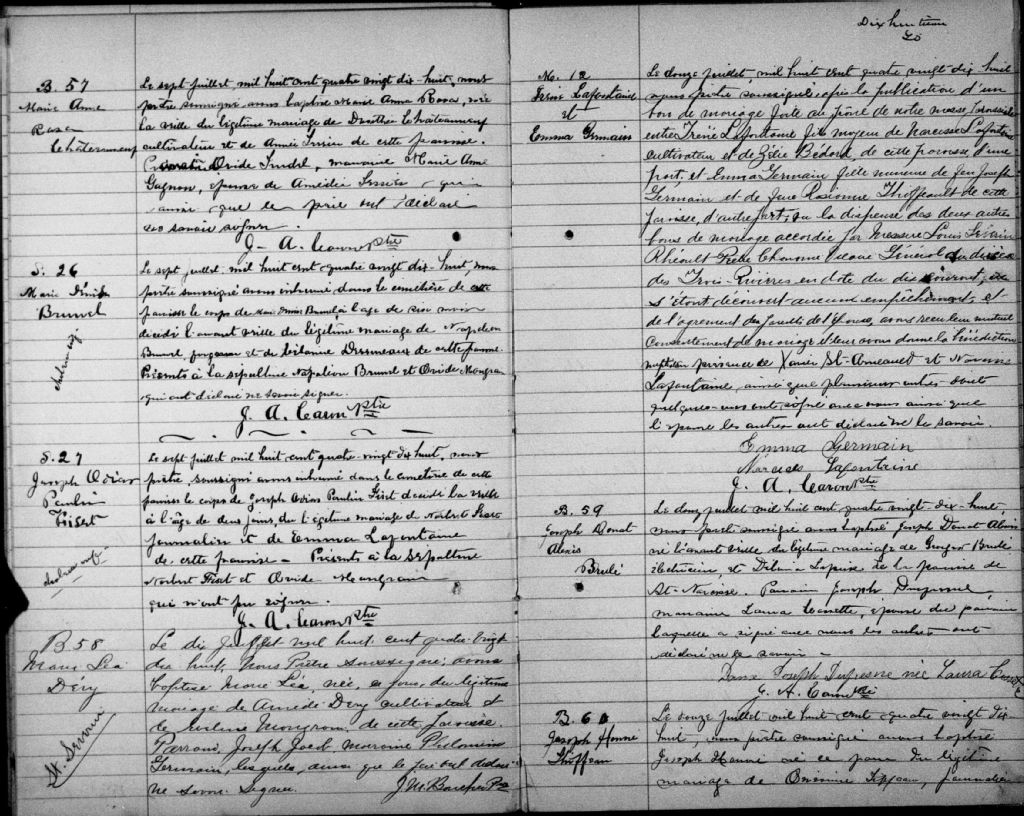 B. 57
Marie Anne
Rosa
Le sept juillet, mil huit cent quatre vingt dix-huit, nous
prêtre soussigné avons baptisé Marie Anne Rosa, née
la veille du légitime mariage de Dorothée
cultivateur et de de cette paroisse.
Ovide Marie
Gagnon, épouse de Amédée qui
ainsi que le père ont déclaré
ne savoir signer.
J. A. Caron Ptre
S. 26
Marie
Brunel
Le sept juillet, mil huit cent quatre vingt dix-huit, nous
prêtre soussigné avons inhumé dans le cimetière de cette
paroisse le corps de Brunel, à l'âge de mois
décédé l'avant veille du légitime mariage de Napoléon
Brunel, forgeron et de de cette paroisse.
Présents à la sépulture Napoléon Brunel et Ovide Mongrain
qui ont déclaré ne savoir signer.
J. A. Caron Ptre
S. 27
Joseph
Paulin
Fiset
Le sept juillet mil huit cent quatre vingt dix huit, nous
prêtre soussigné avons inhumé dans le cimetière de cette
paroisse le corps de Joseph Paulin Fiset décédé la veille
à l'âge de deux jours, du légitime mariage de Norbert Fiset
journalier et de Emma Lafontaine
de cette paroisse - Présents à la sépulture
Norbert Fiset et Ovide Mongrain
qui n'ont pu signer.
J. A. Caron Ptre
B 58
Marie Léa
Déry
St. Séverin
Le dix juillet mil huit cent quatre vingt
dix huit, Nous Prêtre soussigné, avons
baptisé Marie Léa, née, ce jour, du légitime
mariage de Amédé Déry cultivateur et
de Mongrain, de cette paroisse.
Parrain, Joseph Jacob Marraine Philomène
Germain, lesquels, ainsi que le père ont déclaré
ne savoir signer.
Dix huitième
M. 12
Irénée Lafontaine
et
Emma Germain
Le douze juillet, mil huit cent quatre vingt dix huit
nous prêtre soussigné après la publication d'un
ban de mariage faite au prône de notre messe paroissiale
entre Irénée Lafontaine fils majeur de Narcisse Lafontaine
cultivateur et de Zélie Bédard, de cette paroisse d'une
part, et Emma Germain fille mineure de feu Joseph
Germain et de feue Thiffeault de cette
paroisse, d'autre part, vu la dispense des deux autres
bans de mariage accordée par Messire Louis Séverin
Rhéault Prêtre Chanoine Vicaire Général du diocèse
des Trois-Rivières en date du dix courant, ne
s'étant découvert aucun empêchement, et
de l'agrément des parents de l'épouse, avons reçu leur mutuel
consentement de mariage et leur avons donné la bénédiction
nuptiale en présence de Xavier St-Arneault et Narcisse
Lafontaine, ainsi que plusieurs autres dont
quelques-uns ont signé avec nous ainsi que
l'épouse les autres ont déclaré ne le savoir.
Emma Germain
Narcisse Lafontaine
J. A. Caron Ptre
B. 59
Joseph Donat
Alexis
Brulé
Le douze juillet mil huit cent quatre vingt-dix-huit,
nous prêtre soussigné avons baptisé Joseph Donat Alexis
né l'avant veille du légitime mariage de Brulé
et Délima de la paroisse de
St-Narcisse. Parrain Joseph Dufresne,
marraine Laura épouse du parrain
laquelle a signé avec nous les autres ont
déclaré ne le savoir -
Dame Joseph Dufresne née Laura
J. A. Caron Ptre
B. 60
Joseph
Le douze juillet mil huit cent quatre vingt dix
huit, nous prêtre soussigné avons baptisé
Joseph né ce jour du légitime
mariage de journalier